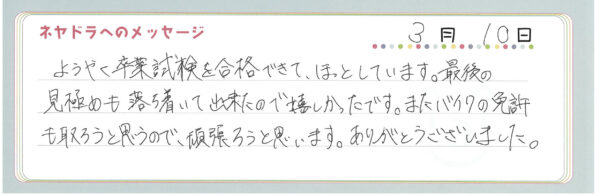 ネヤドラへのメッセージ
3月10日
ようやく卒業試験を合格できて、ほっとしています。最後の
見極めも落ち着いて出来たので嬉しかったです。またバイクの免許
も取ろうと思うので、頑張ろうと思います。ありがとうございました。